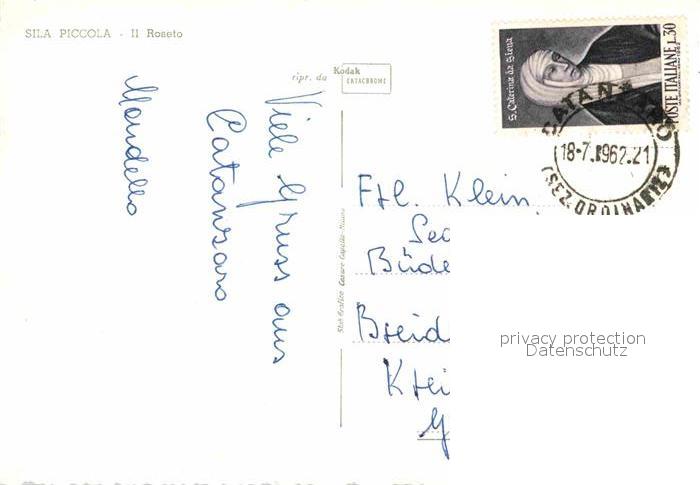 SILA PICCOLA - Il Roseto
ripr. da Kodak
EKTACHROME
Viele Gruss aus
Catanzaro
Mandello
Stab. Grafico Cesare Capello - Milano
S. Caterina da Siena
POSTE ITALIANE L.30
CATANZARO
18-7.1962.21
(SEZ. ORDINARIE)
Frl. Klein.
Sec
Büde
Breid
Krei
privacy protection
Datenschutz